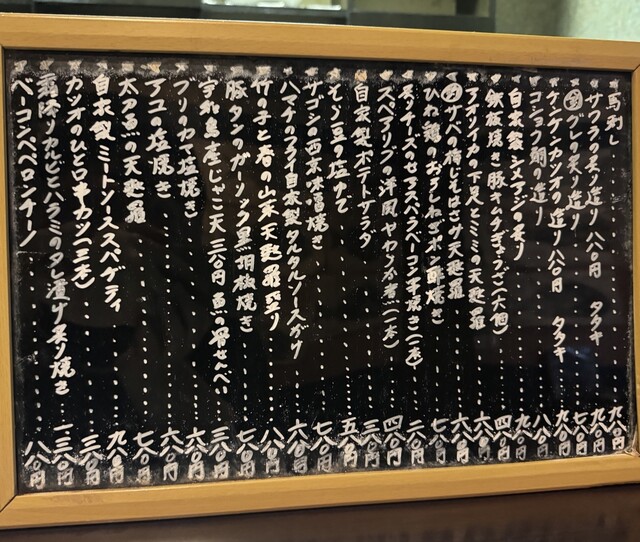 馬刺し……九八〇円
サワラの炙り造り 八八〇円 タタキ 九八〇円
グレの炙り造り……七八〇円
ケンケンカツオの造り 八八〇円 タタキ 九八〇円
コショウ鯛の造り……八八〇円
自家製シメアジの炙り……九八〇円
鉄板焼き豚キムチぎょうざ(六個)……四八〇円
アオリイカの下足とミミの天麩羅……六八〇円
サバの梅じそはさみ天麩羅……六八〇円
ひね鶏のおろしねぎポン酢焼き……七八〇円
チーズのせアスパラベーコン串焼き(一本)……二八〇円
スペアリブの洋風やわらか煮(一本)……四八〇円
自家製ポテートサラダ……三八〇円
そら豆の塩ゆで……五八〇円
サゴシの西京味噌焼き……七八〇円
ハマチのフライ自家製タルタルソースがけ……六八〇円
竹の子と春の山菜天麩羅盛り……八八〇円
豚タンのガーリック黒胡椒焼き……七八〇円
宇和島産じゃこ天 三八〇円 魚の骨せんべい……三八〇円
ブリのカマ塩焼き……六八〇円
アコの塩焼き……六八〇円
太刀魚の天麩羅……七八〇円
自家製ミートソーススパゲティ……九八〇円
カツオのひと口串カツ(二本)……三八〇円
霜降りカルビとハラミのタレ漬け炙り焼き……一三八〇円
ベーコンペペロンチーノ……八八〇円